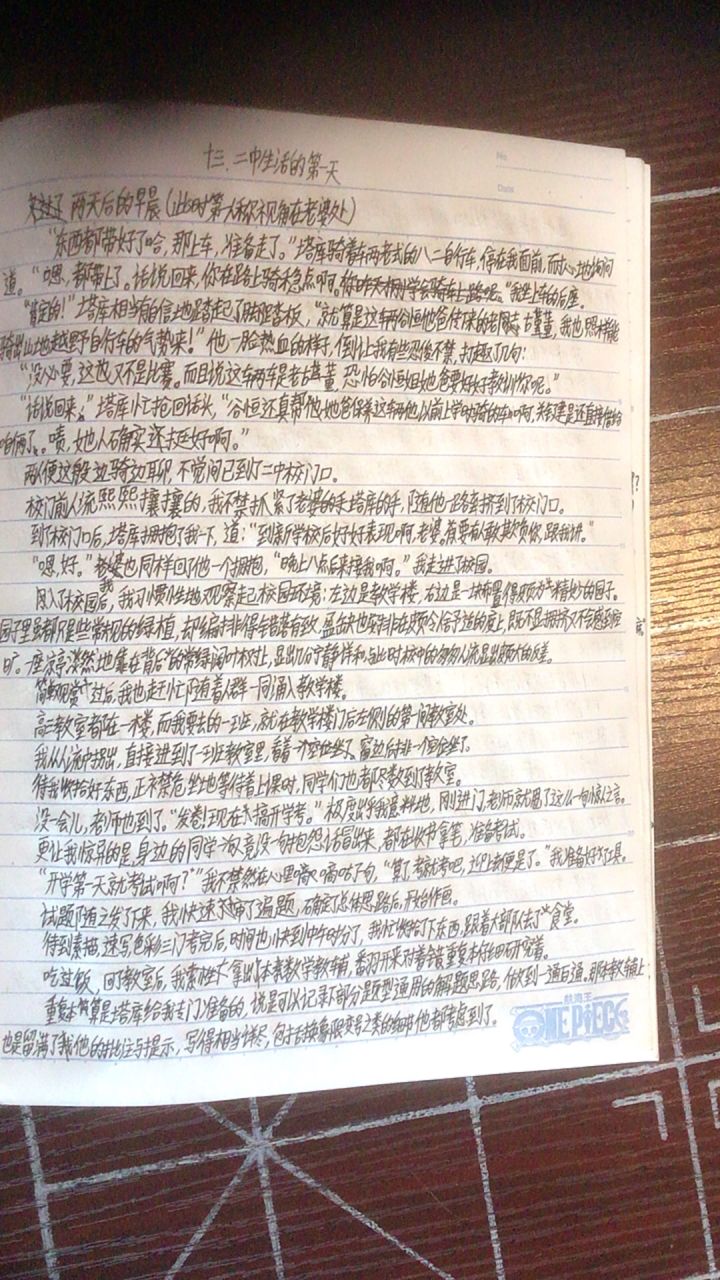 十三、二中生活的第一天
No.
Date
两天后的早晨（此时第一人称视角在老婆处）
“东西都带好了哈，那上车，准备走了。”塔库骑着车两老式的八二自行车，停在我面前，而耐心地询问
道。“嗯，都带上了。话说回来，你在路上骑稳点啊，你昨天刚学会骑车上路呢。”我坐上车的后座，
“肯定的！”塔库相当有自信地踏起了脚踏板，“就算是这辆谷恒他爸传来的老古董，我也照样能
骑出山地越野自行车的气势来！”他一脸热血的样子，倒让我有些忍俊不禁，打趣了几句：
“没必要，这也又不是比赛。而且说这车两车是老古董，恐怕谷恒姐她爸要好好教训你呢。”
“话说回来，”塔库忙抢回话头，“谷恒还真帮他她爸保养这车两他以前上学时骑的车啊，关键是还直接借给
咱俩了。啧，她人确实还挺好啊。”
两人便这般边骑边聊，不觉间已到了二中校门口。
校门前人流熙熙攘攘的，我不禁抓紧了塔库的手，随他一路奔挤到了校门口。
到了校门口后，塔库拥抱了我一下，道：“到新学校后好好表现啊，老婆。有要有人敢欺负你，跟我讲。”
“嗯，好。”我也同样回了他一个拥抱，“晚上八点后来接我啊。”我走进了校园。
刚入了校园后，我习惯性地观察起校园环境：左边是教学楼，右边是一块布置得颇为精妙的园子。
园子里虽都只是些常见的绿植，却编排得错落有致，盆缸也安排在令人舒适的度上，既不显拥挤又不会感到空
旷。一座凉亭淡然地靠在背后的常绿阔叶树上，显出几分宁静祥和，与此时校中的匆匆人流显出颇大的反差。
简单观赏过后，我也赶忙随着人群一同涌入教学楼。
高三教室都在一楼，而我要去的一班，就在教学楼门后左侧的第一间教室处。
我从人流中拐出，直接进到了一班教室里，看着一个空位坐了。
待我收拾好东西，正襟危坐地等待着上课时，同学们也都尽数到了教室。
没一会儿，老师也到了。“发卷！现在搞开学考。”极度出乎我意料地，刚进门，老师就冒了这么一句惊人之言。
更让我惊异的是，身边的同学一个个竟没一句抱怨话冒出来，都在收书拿笔，准备考试。
“开学第一天就考试啊？”我不禁然在心里嘀嘀咕咕了句，“算了，考就考吧，迎上去便是了。”我准备好了工具。
试题随之发了下来，我快速审了遍题，确定了总体思路后，开始作画。
待到素描、速写、色彩三门考完后，时间也快到中午时分了，我忙收拾了下东西，跟着大部队去了食堂。
吃过饭，回了教室后，我索性拿出本教数学教辅，翻开来对着错重复仔细研究着。
重复本算是塔库给我专门准备的，说是可以记录下部分题型通用的解题思路，做到一通百通。那本教辅上
也是留满了他的批注与提示，写得相当详尽，包括换象限变号之类的细节他都考虑到了。
航海王
ONE PIECE